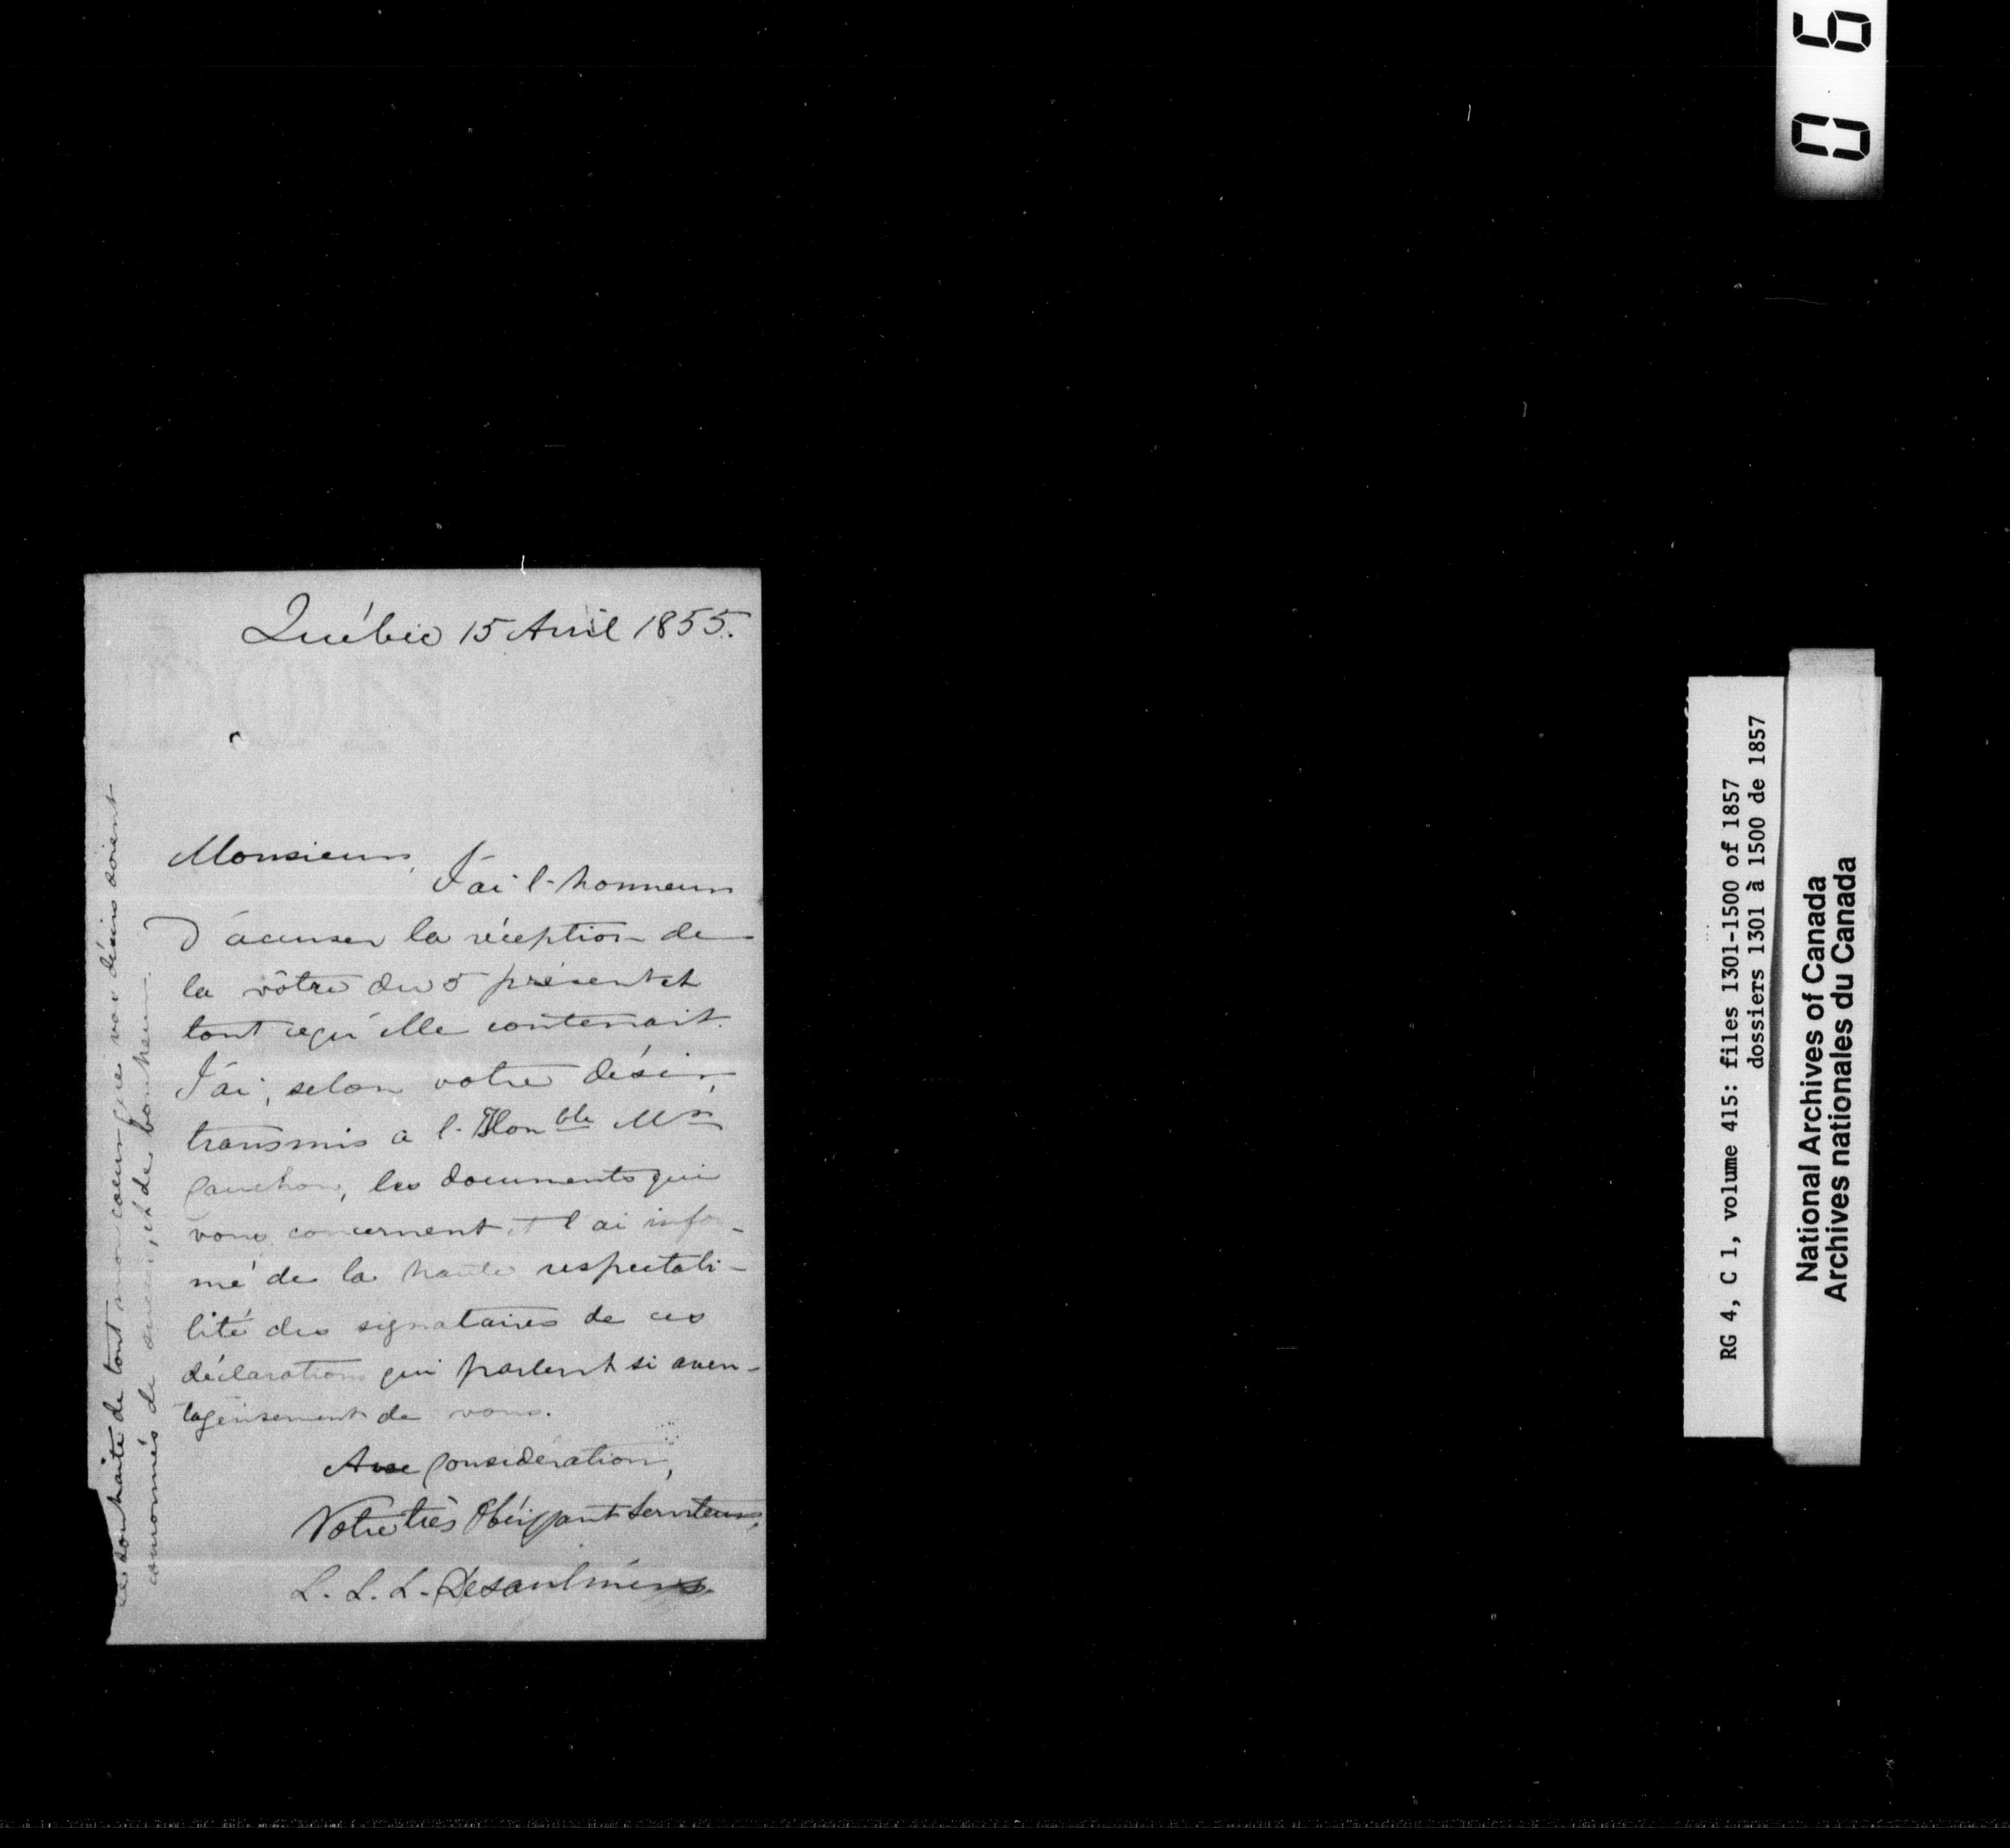 Québec 15 Avril 1855.
Monsieur,
J'ai l'honneur
d'acuser la réception de
la vôtre du 5 présent et
tout cequ'elle contenait.
J'ai, selon votre désir,
transmis a l'Honble Mr
Cauchon, les documents qui
vous concernent et l'ai infor-
mé de la haute respectabi-
lité des signataires de ces
déclarations qui parlent si aven-
tageusement de vous.
Avec Considération,
Votre très Obéissant Serviteur,
L. L. L. Desaulniers
souhaite de tout mon coeur que vos désirs soient
couronnés de succès, et de bonheur.
06
RG 4, C 1, volume 415: files 1301-1500 of 1857
dossiers 1301 à 1500 de 1857
National Archives of Canada
Archives nationales du Canada